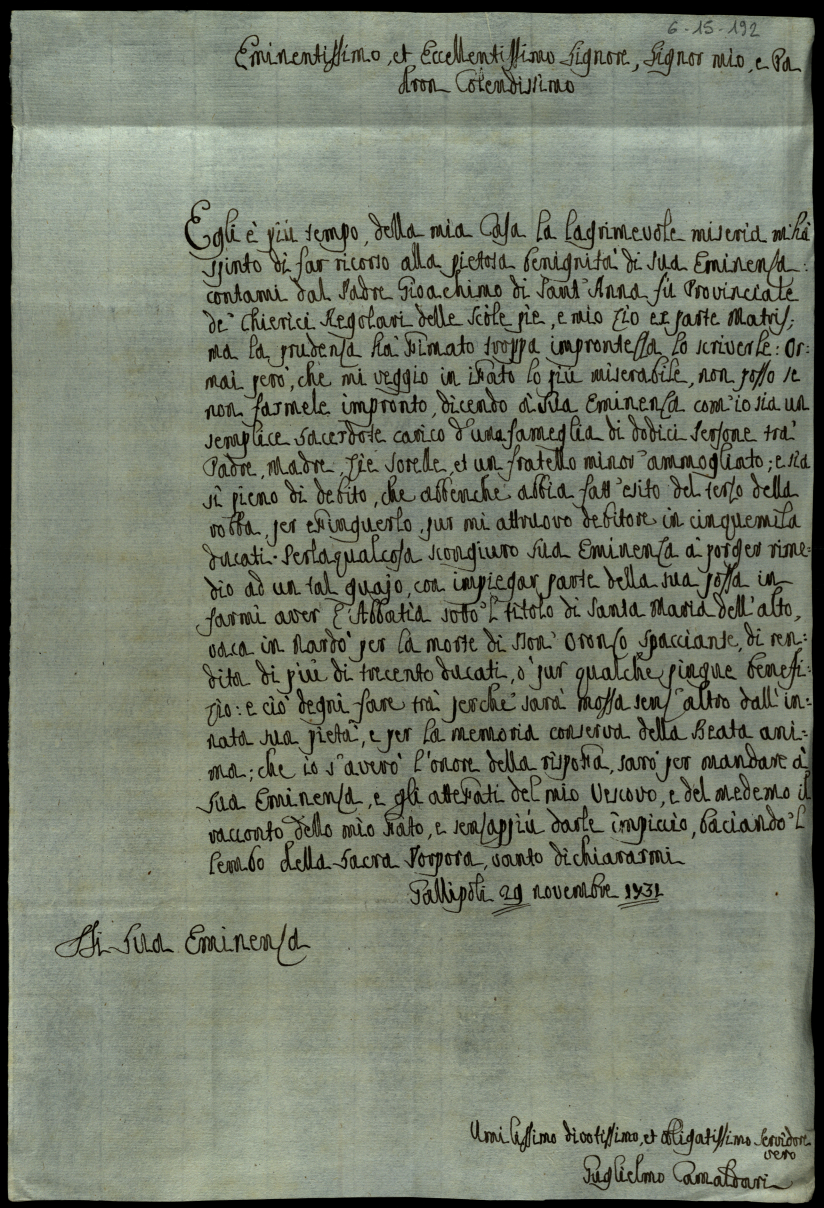 6-15-192
Eminentissimo, et Eccellentissimo Signore, Signor mio, e Pa
dron Colendissimo
Egli è più tempo, della mia Casa la lagrimevole miseria m'hà
spinto di far ricorso alla pietosa benignità di sua Eminenza:
contami dal Padre Gioachimo di Sant'Anna fù Provinciale
de' Chierici Regolari delle Scole pie, e mio Zio ex parte Matris;
ma la prudenza hà stimato troppa improntezza lo scriverle: Or=
mai però, che mi veggio in istato lo più miserabile, non posso se
non farmele impronto, dicendo à Sua Eminenza com'io sia un
semplice sacerdote carico d'una fameglia di dodici persone trà
Padre, Madre, Zie sorelle, et un fratello minor'ammogliato; e sia
sì pieno di debito, che abbenche abbia fatt'esito del terzo della
robba per estinguerlo, pur mi attruovo debitore in cinquemila
ducati. Perlaqualcosa scongiuro sua Eminenza à porger rime=
dio ad un tal guajo, con impiegar parte della sua possa in
farmi aver l'Abbatia sotto 'l titolo di Santa Maria dell'alto,
vaca in Nardò per la morte di Don' Oronzo Spacciante, di ren=
dita di più di trecento ducati, ò pur qualche pingue benefi=
zio: e ciò degni fare trà perche sarà mossa senz'altro dall'in=
nata sua pietà, e per la memoria conserva della Beata ani=
ma; che io s'averò l'onore della risposta, sarò per mandare à
Sua Eminenza, e gli attestati del mio Vescovo, e del medemo il
racconto dello mio stato, e senzappiù darle impiccio, baciando 'l
lembo della Sacra Porpora, vanto dichiararmi
Gallipoli 29 novembre 1731
Di Sua Eminenza
Umilissimo divotissimo, et obligatissimo Servidore
vero
Guglielmo Camaldari